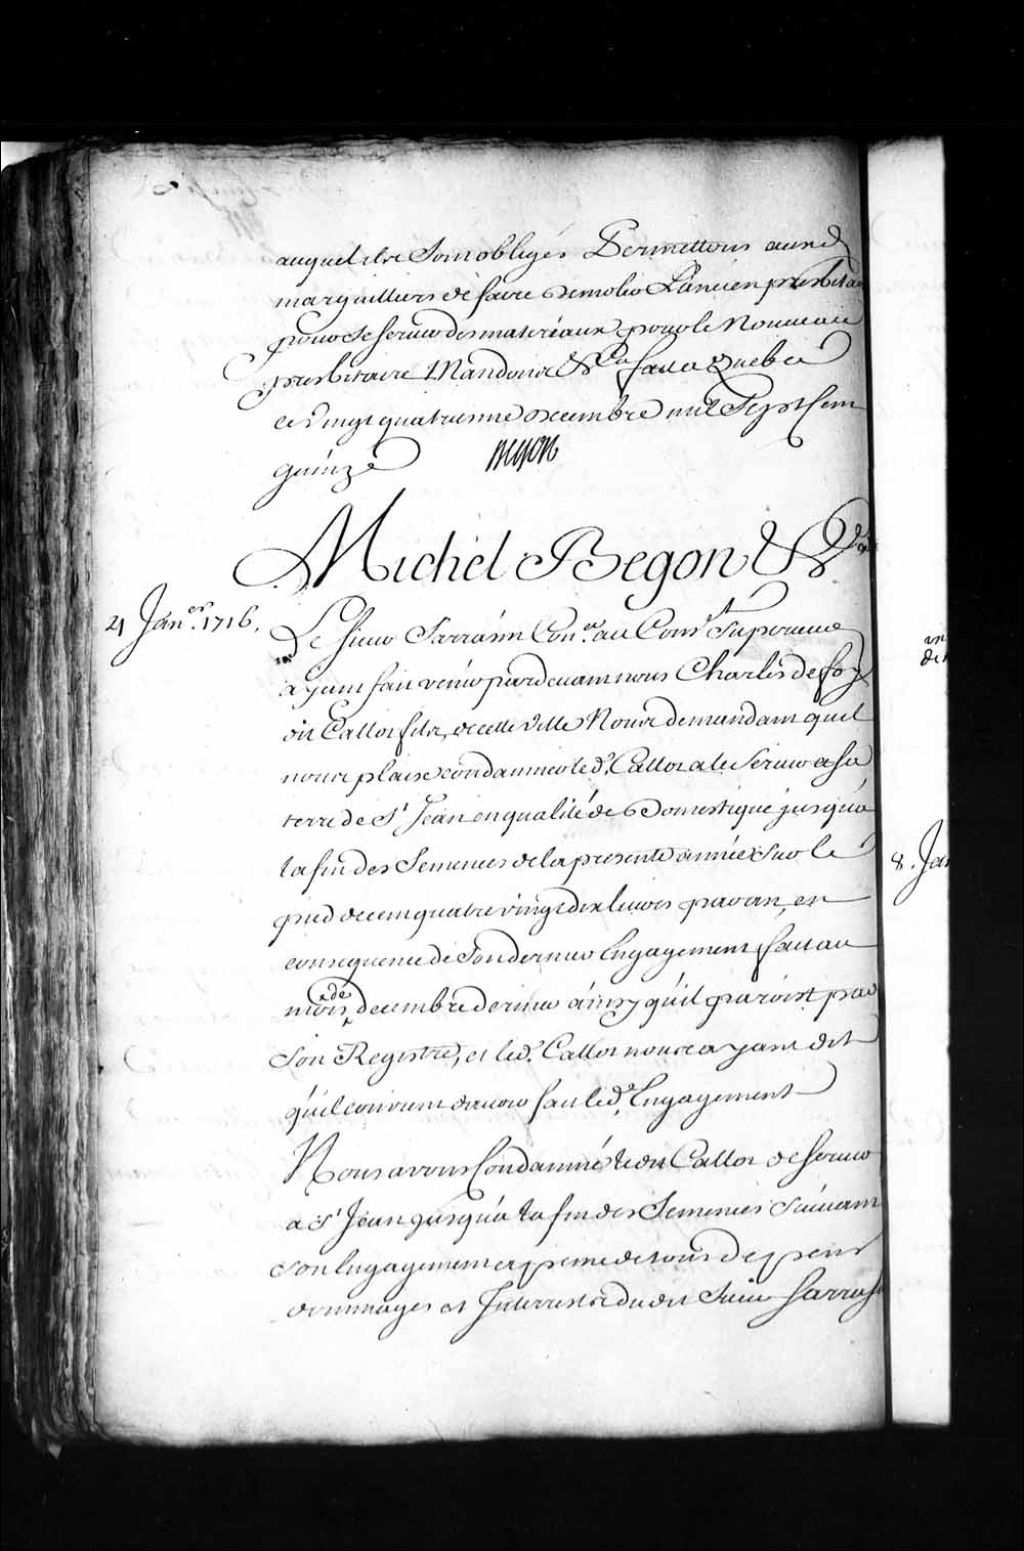 auquel ils sont obligés Permettons ausd.
marguilliers de faire demolir L'ancien presbitaire
pour se servir des materiaux pour le Nouveau
presbitaire Mandons &c.a fait a Quebec
ce vingt quatrieme decembre mil Sept Cent
quinze Begon
Michel Begon &c.a
4 Jan.er 1716.
Le Sieur Sarrasin Con.er au Cons.l Superieur
ayant fait venir pardevant nous Charles de foy
dit Callot fils, de cette Ville Nous demandant quil
nous plaise condamner led. Callot a le Servir a sa
terre de S.t Jean en qualité de Domestique jusqu'a
la fin des Semences de la presente année Sur le
pied de cent quatre vingt dix livres par an, en
consequence de Son dernier Engagement fait au
mois de decembre dernier ainsy qu'il paroist par
Son Registre, et led. Callot nous ayant dit
qu'il convient d'avoir fait led. Engagement
Nous avons Condamné ledit Callot de Servir
a S.t Jean jusqu'a la fin des Semences Suivant
Son Engagement a peine de tous depens
dommages et Interrests dudit Sieur Sarrasin
8. Jan